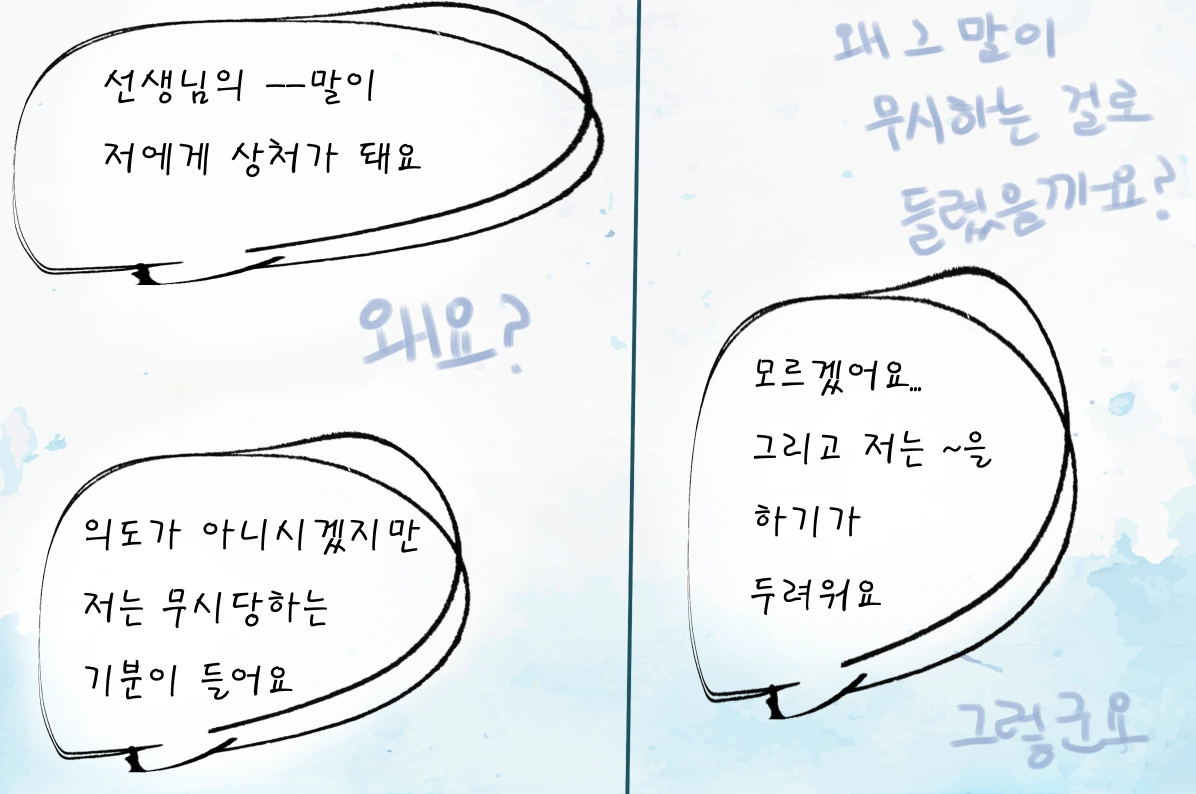 선생님의 --말이
저에게 상처가 돼요
왜요?
의도가 아니시겠지만
저는 무시당하는
기분이 들어요
왜 그 말이
무시하는 걸로
들렸을까요?
모르겠어요...
그리고 저는 ~을
하기가
두려워요
그렇군요